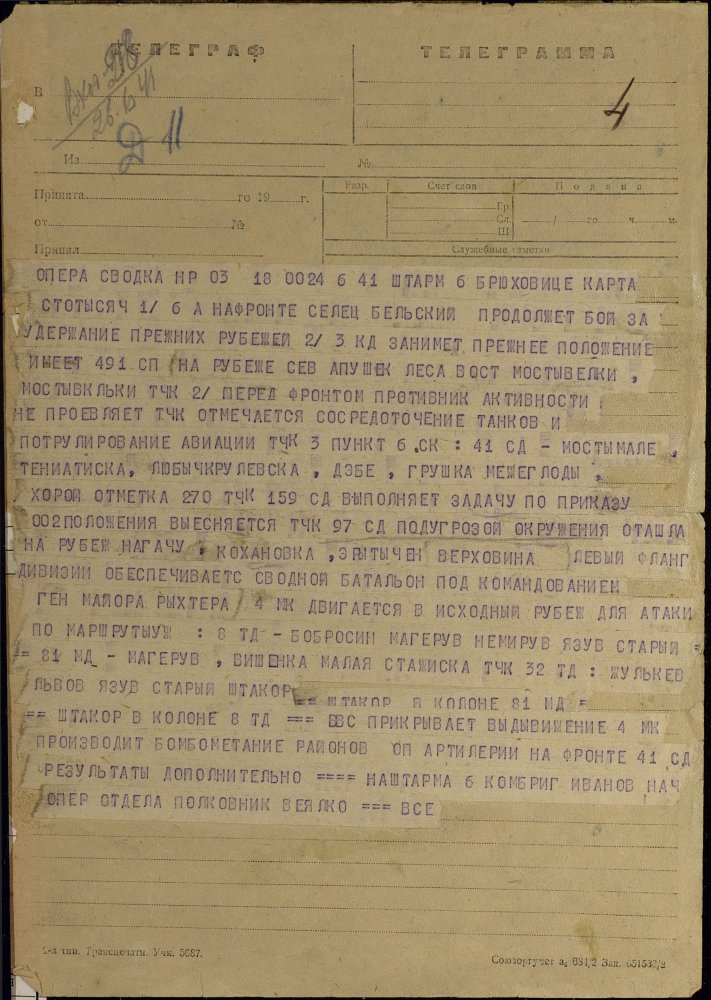 ТЕЛЕГРАФ
ТЕЛЕГРАММА
В
26.6 41
Д 11
4
Из
№
Принята го 19 г.
от № 
Принял
Разр.
Счет слов
Гр.
Сл.
Ш
Подача
/ го ч. м.
Служебные отметки
ОПЕРА СВОДКА НР 03 18 0024 6 41 ШТАРМ 6 БРЮХОВИЦЕ КАРТА
СТОТЫСЯЧ 1/ 6 А НАФРОНТЕ СЕЛЕЦ БЕЛЬСКИЙ ПРОДОЛЖЕТ БОЙ ЗА
УДЕРЖАНИЕ ПРЕЖНИХ РУБЕЖЕЙ 2/ 3 КД ЗАНИМЕТ ПРЕЖНЕЕ ПОЛОЖЕНИЕ
ИМЕЕТ 491 СП НА РУБЕЖЕ СЕВ АПУШЕК ЛЕСА ВОСТ МОСТЫВЕЛКИ ,
МОСТЫВКЛЬКИ ТЧК 2/ ПЕРЕД ФРОНТОМ ПРОТИВНИК АКТИВНОСТИ
НЕ ПРОЕВЛЯЕТ ТЧК ОТМЕЧАЕТСЯ СОСРЕДОТОЧЕНИЕ ТАНКОВ И
ПОТРУЛИРОВАНИЕ АВИАЦИИ ТЧК 3 ПУНКТ 6 СК : 41 СД - МОСТЫМАЛЕ ,
ТЕНИАТИСКА, ЛЮБЫЧКРУЛЕВСКА , ДЭБЕ , ГРУШКА МЕЖЕГЛОДЫ ,
ХОРОЙ ОТМЕТКА 270 ТЧК 159 СД ВЫПОЛНЯЕТ ЗАДАЧУ ПО ПРИКАЗУ
002ПОЛОЖЕНИЯ ВЫЕСНЯЕТСЯ ТЧК 97 СД ПОДУГРОЗОЙ ОКРУЖЕНИЯ ОТАШЛА
НА РУБЕЖ НАГАЧУ , КОХАНОВКА , ВЕРХОВИНА ЛЕВЫЙ ФЛАНГ
ДИВИЗИИ ОБЕСПЕЧИВАЕТС СВОДНОЙ БАТАЛЬОН ПОД КОМАНДОВАНИЕМ
ГЕН МАЙОРА РЫХТЕРА / 4 МК ДВИГАЕТСЯ В ИСХОДНЫЙ РУБЕЖ ДЛЯ АТАКИ
ПО МАРШРУТЫУЖ : 8 ТД - БОБРОСИН МАГЕРУВ НЕМИРУВ ЯЗУВ СТАРЫЙ =
= 81 МД - МАГЕРУВ , ВИШЕНКА МАЛАЯ СТАЖИСКА ТЧК 32 ТД : ЖУЛЬКЕВ
ЛЬВОВ ЯЗУВ СТАРЫЙ ШТАКОР == ШТАКОР В КОЛОНЕ 81 МД =
== ШТАКОР В КОЛОНЕ 8 ТД === ВВС ПРИКРЫВАЕТ ВЫДЫВИЖЕНИЕ 4 МК
ПРОИЗВОДИТ БОМБОМЕТАНИЕ РАЙОНОВ ОП АРТИЛЕРИИ НА ФРОНТЕ 41 СД
РЕЗУЛЬТАТЫ ДОПОЛНИТЕЛЬНО ==== НАШТАРМА 6 КОМБРИГ ИВАНОВ НАЧ
ОПЕР ОТДЕЛА ПОЛКОВНИК ВЕЯЛКО === ВСЕ
тип. Трансцечати. Учк. 5687.
Союзоргучет а, 681/2 Зак. 651533/2